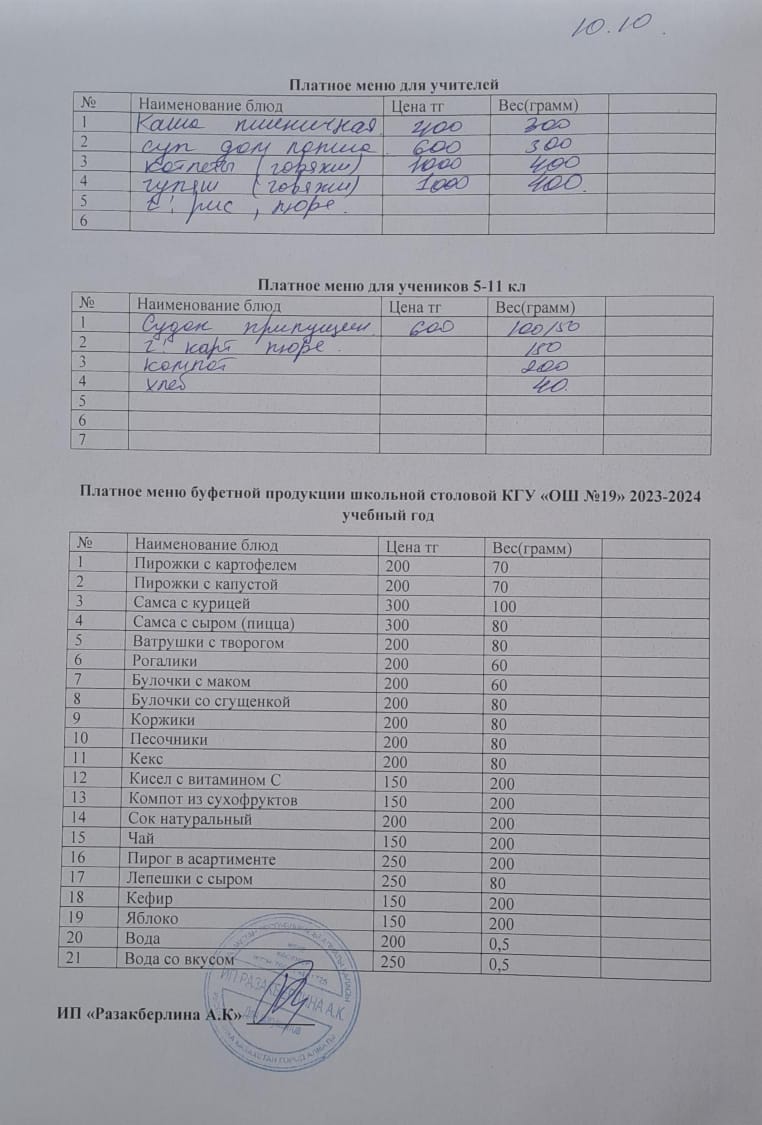 10.10.
Платное меню для учителей
№ Наименование блюд Цена тг Вес(грамм)
1 Каша пшеничная 400 300
2 суп дом лапша 600 300
3 котлеты (говяжи) 1000 400
4 гуляш (говяжи) 1000 400.
5 г: рис, пюре.
6
Платное меню для учеников 5-11 кл
№ Наименование блюд Цена тг Вес(грамм)
1 Судак припущен 600 100/50
2 г: карт пюре. 150
3 компот 200
4 хлеб 40.
5
6
7
Платное меню буфетной продукции школьной столовой КГУ «ОШ №19» 2023-2024
учебный год
№ Наименование блюд Цена тг Вес(грамм)
1 Пирожки с картофелем 200 70
2 Пирожки с капустой 200 70
3 Самса с курицей 300 100
4 Самса с сыром (пицца) 300 80
5 Ватрушки с творогом 200 80
6 Рогалики 200 60
7 Булочки с маком 200 60
8 Булочки со сгущенкой 200 80
9 Коржики 200 80
10 Песочники 200 80
11 Кекс 200 80
12 Кисел с витамином С 150 200
13 Компот из сухофруктов 150 200
14 Сок натуральный 200 200
15 Чай 150 200
16 Пирог в асартименте 250 200
17 Лепешки с сыром 250 80
18 Кефир 150 200
19 Яблоко 150 200
20 Вода 200 0,5
21 Вода со вкусом 250 0,5
ИП РАЗАКБЕРЛИНА А.К.
ИП «Разакберлина А.К»